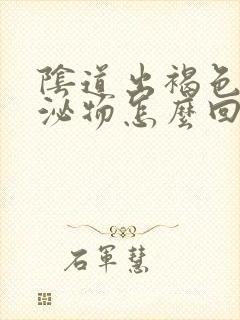 陰道出褐色
泌物怎麼回
石軍慧